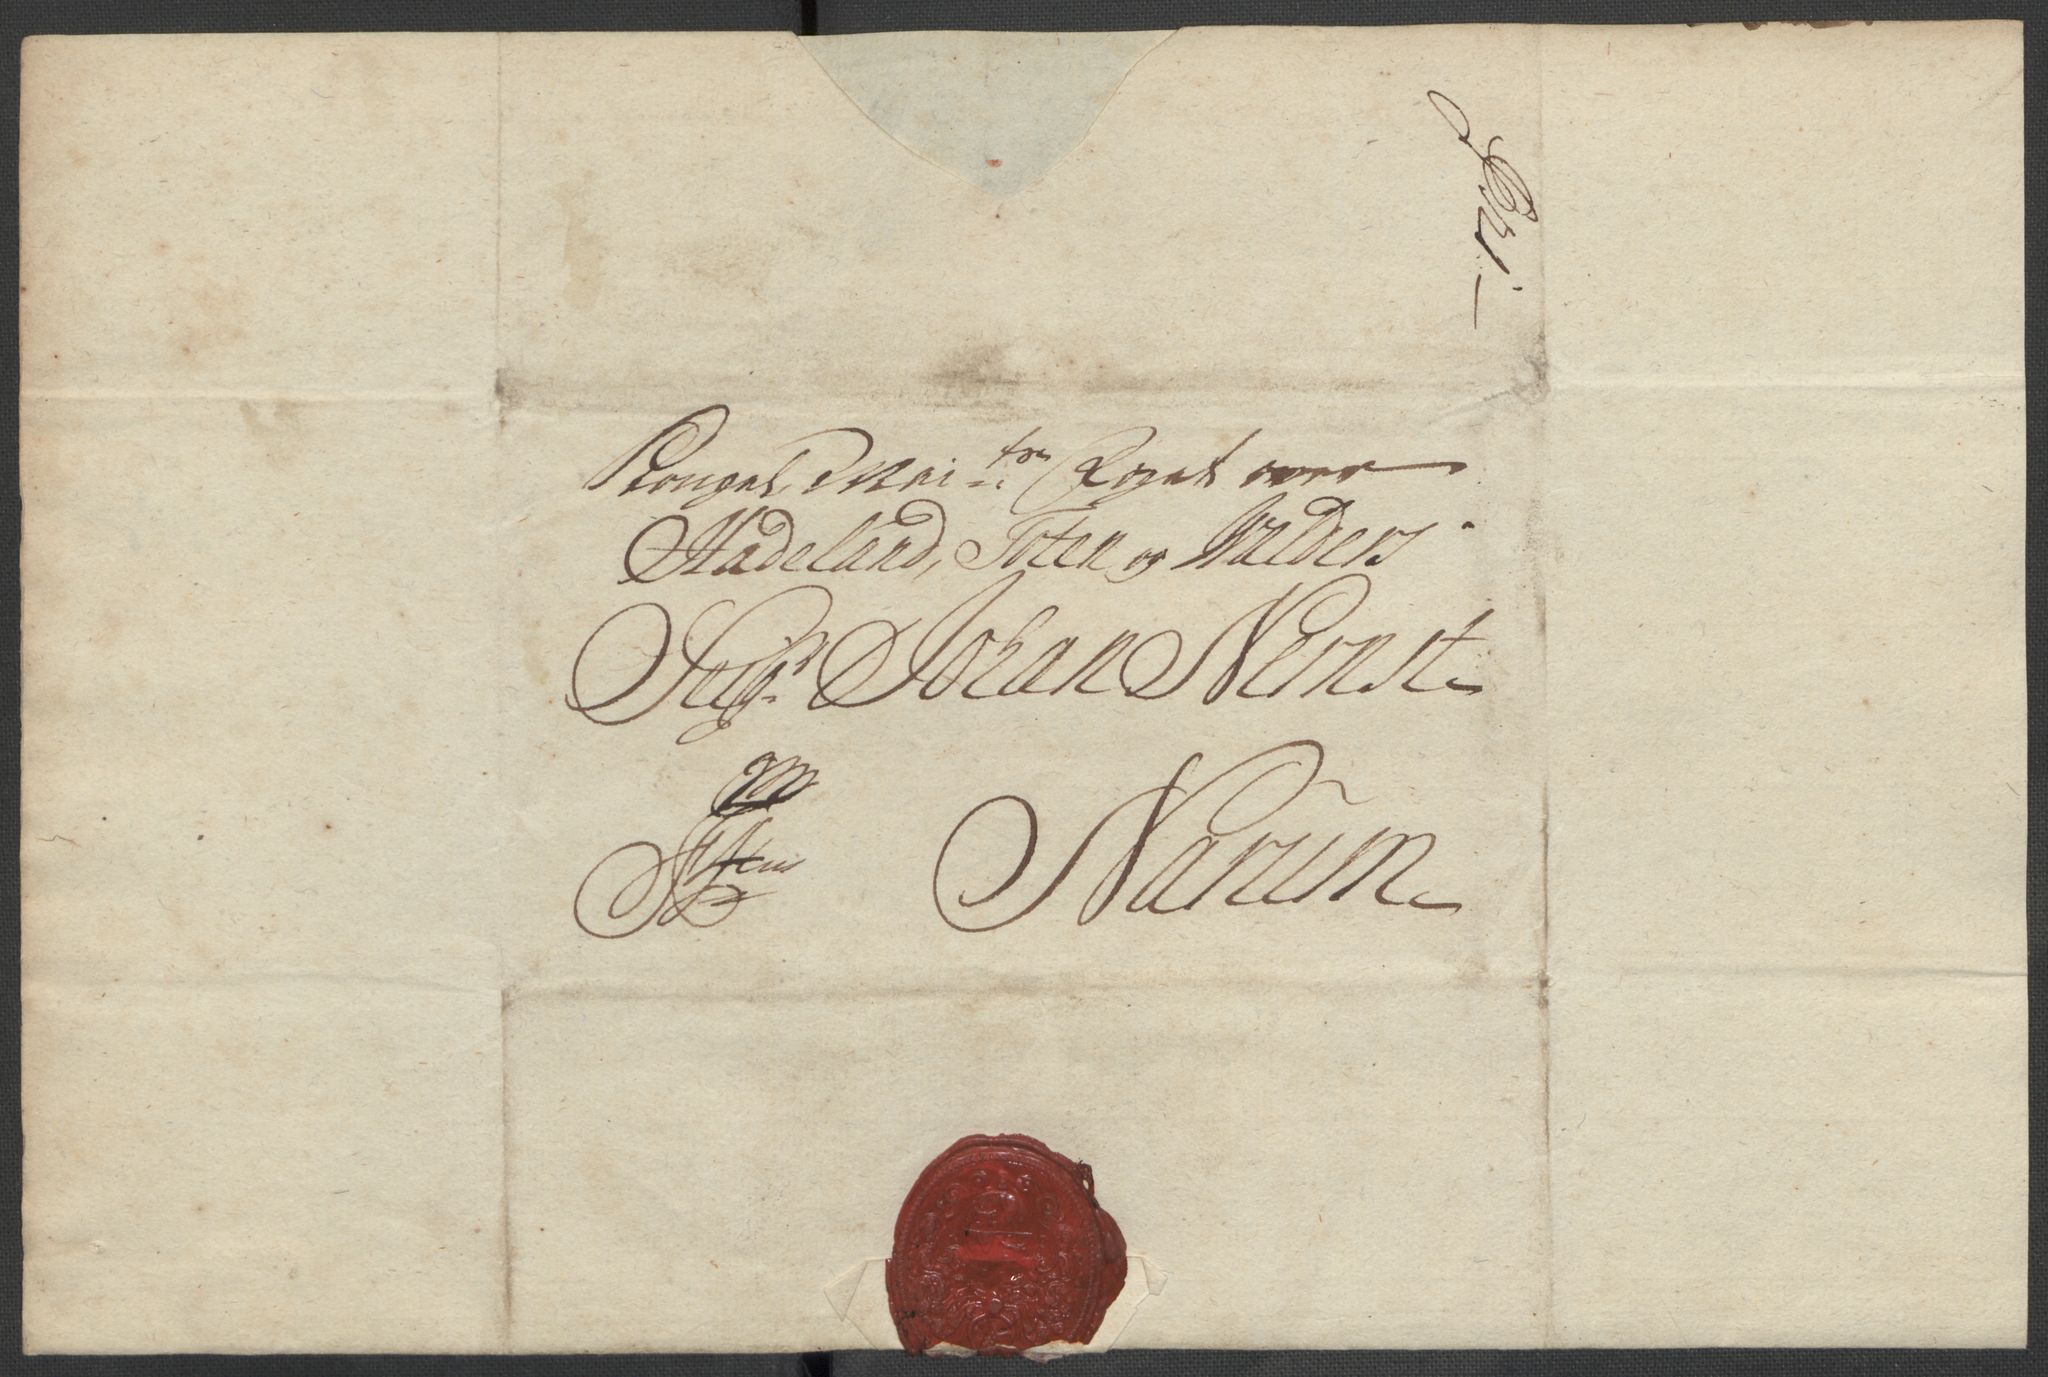 Kongel Mai:ts Fogat over
Hadeland, Toten og Walders
Seigr Johan Nernst
Narum